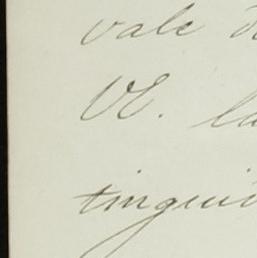 vale d
VE. la
tingui